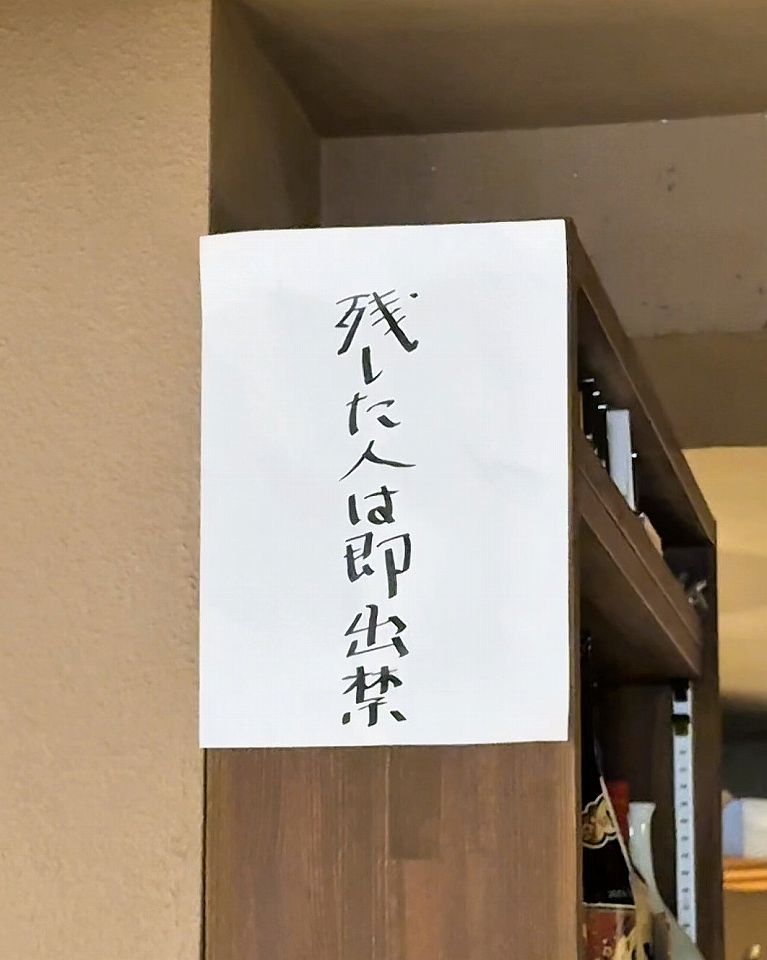 残した人は即出禁